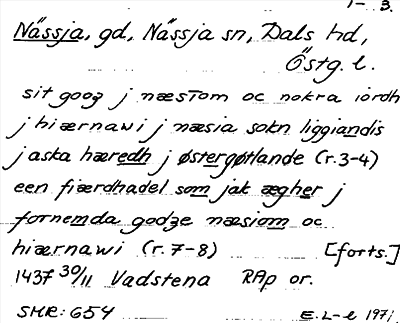 1- 3.
Nässja, gd, Nässja sn, Dals hd,
Östg. l.
sit gooz j næstom oc nokra iordh
j hiærnawi j næsia sokn liggiandis
j aska hæredh j østergøtlande (r.3-4)
een fiærdhadel som jak ægher j
fornemda godze næsiom oc
hiærnawi (r.7-8) [forts.]
1437 30/11 Vadstena RAp or.
SMR: 654 E. L-e 197